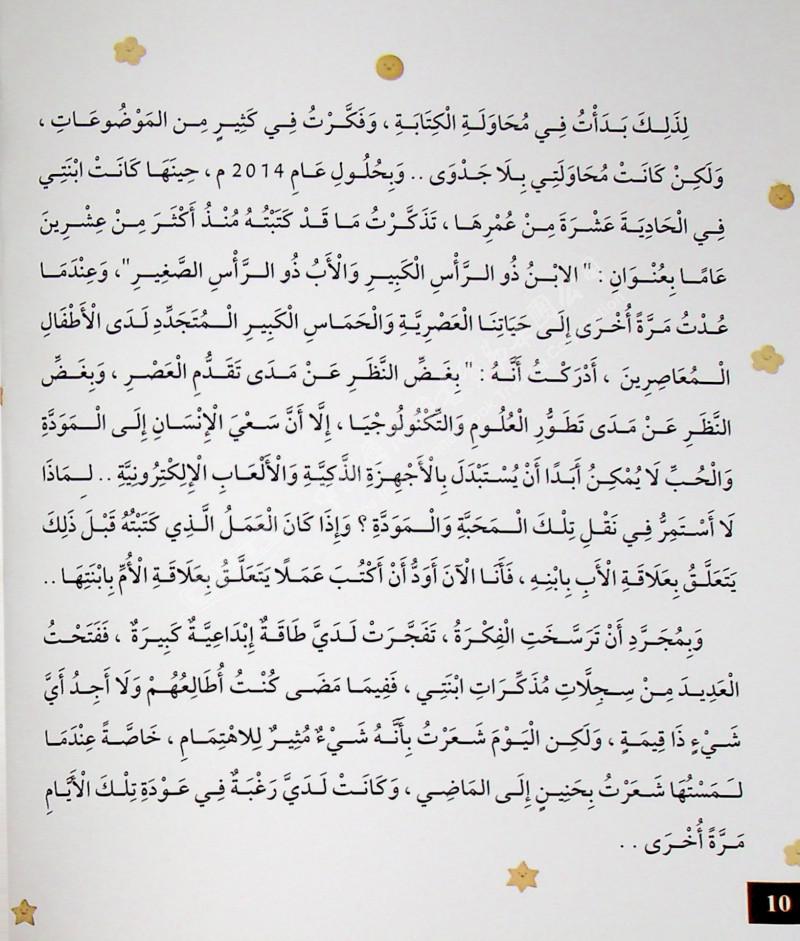 لِذَلِكَ بَدَأْتُ فِي مُحَاوَلَةِ الْكِتَابَةِ ، وَفَكَّرْتُ فِي كَثِيرٍ مِن المَوْضُوعَاتِ ،
وَلَكِنْ كَانَتْ مُحَاوَلَتِي بِلَا جَدْوَى .. وَبِحُلُولِ عَامِ 2014 م ، حِينَهَا كَانَتْ ابْنَتِي
فِي الْحَادِيَةَ عَشْرَةَ مِنْ عُمْرِهَا ، تَذَكَّرْتُ مَا قَدْ كَتَبْتُهُ مُنْذُ أَكْثَرَ مِنْ عِشْرِينَ
عَامًا بِعُنْوَانِ : " الابْنُ ذُو الرَّأْسِ الْكَبِيرِ وَالْأَبُ ذُو الرَّأْسِ الصَّغِيرِ"، وَعِنْدَمَا
عُدْتُ مَرَّةً أُخْرَى إِلَى حَيَاتِنَا الْعَصْرِيَّةِ وَالْحَمَاسِ الْكَبِيرِ الْمُتَجَدِّدِ لَدَى الْأَطْفَالِ
الْمُعَاصِرِينَ ، أَدْرَكْتُ أَنَّهُ : " بِغَضِّ النَّظَرِ عَنْ مَدَى تَقَدُّمِ الْعَصْرِ ، وَبِغَضِّ
النَّظَرِ عَنْ مَدَى تَطَوُّرِ الْعُلُومِ وَالتِّكْنُولُوجْيَا ، إِلَّا أَنَّ سَعْيَ الْإِنْسَانِ إِلَى الْمَوَدَّةِ
وَالْحُبِّ لَا يُمْكِنُ أَبَدًا أَنْ يُسْتَبْدَلَ بِالْأَجْهِزَةِ الذَّكِيَّةِ وَالْأَلْعَابِ الْإِلِكْتِرُونِيَّةِ .. لِمَاذَا
لَا أَسْتَمِرُّ فِي نَقْلِ تِلْكَ الْمَحَبَّةِ وَالْمَوَدَّةِ ؟ وَإِذَا كَانَ الْعَمَلُ الَّذِي كَتَبْتُهُ قَبْلَ ذَلِكَ
يَتَعَلَّقُ بِعَلَاقَةِ الْأَبِ بِابْنِهِ ، فَأَنَا الْآنَ أَوَدُّ أَنْ أَكْتُبَ عَمَلًا يَتَعَلَّقُ بِعَلَاقَةِ الْأُمِّ بِابْنَتِهَا ..
وَبِمُجَرَّدِ أَنْ تَرَسَّخَتِ الْفِكْرَةُ ، تَفَجَّرَتْ لَدَيَّ طَاقَةٌ إِبْدَاعِيَّةٌ كَبِيرَةٌ ، فَفَتَحْتُ
الْعَدِيدَ مِنْ سِجِلَّاتِ مُذَكِّرَاتِ ابْنَتِي ، فَفِيمَا مَضَى كُنْتُ أُطَالِعُهُمْ وَلَا أَجِدُ أَيَّ
شَيْءٍ ذَا قِيمَةٍ ، وَلَكِن الْيَوْمَ شَعَرْتُ بِأَنَّهُ شَيْءٌ مُثِيرٌ لِلِاهْتِمَامِ ، خَاصَّةً عِنْدَمَا
لَمَسْتُهَا شَعَرْتُ بِحَنِينٍ إِلَى المَاضِي ، وَكَانَتْ لَدَيَّ رَغْبَةٌ فِي عَوْدَةِ تِلْكَ الْأَيَّامِ
مَرَّةً أُخْرَى ..
10